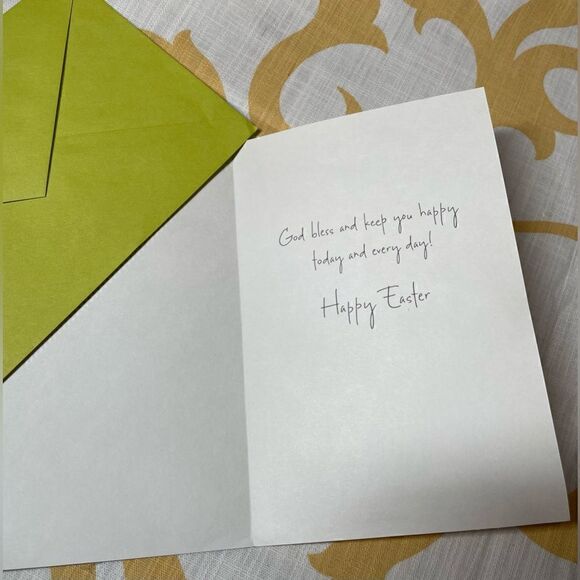 God bless and keep you happy
today and every day!
Happy Easter